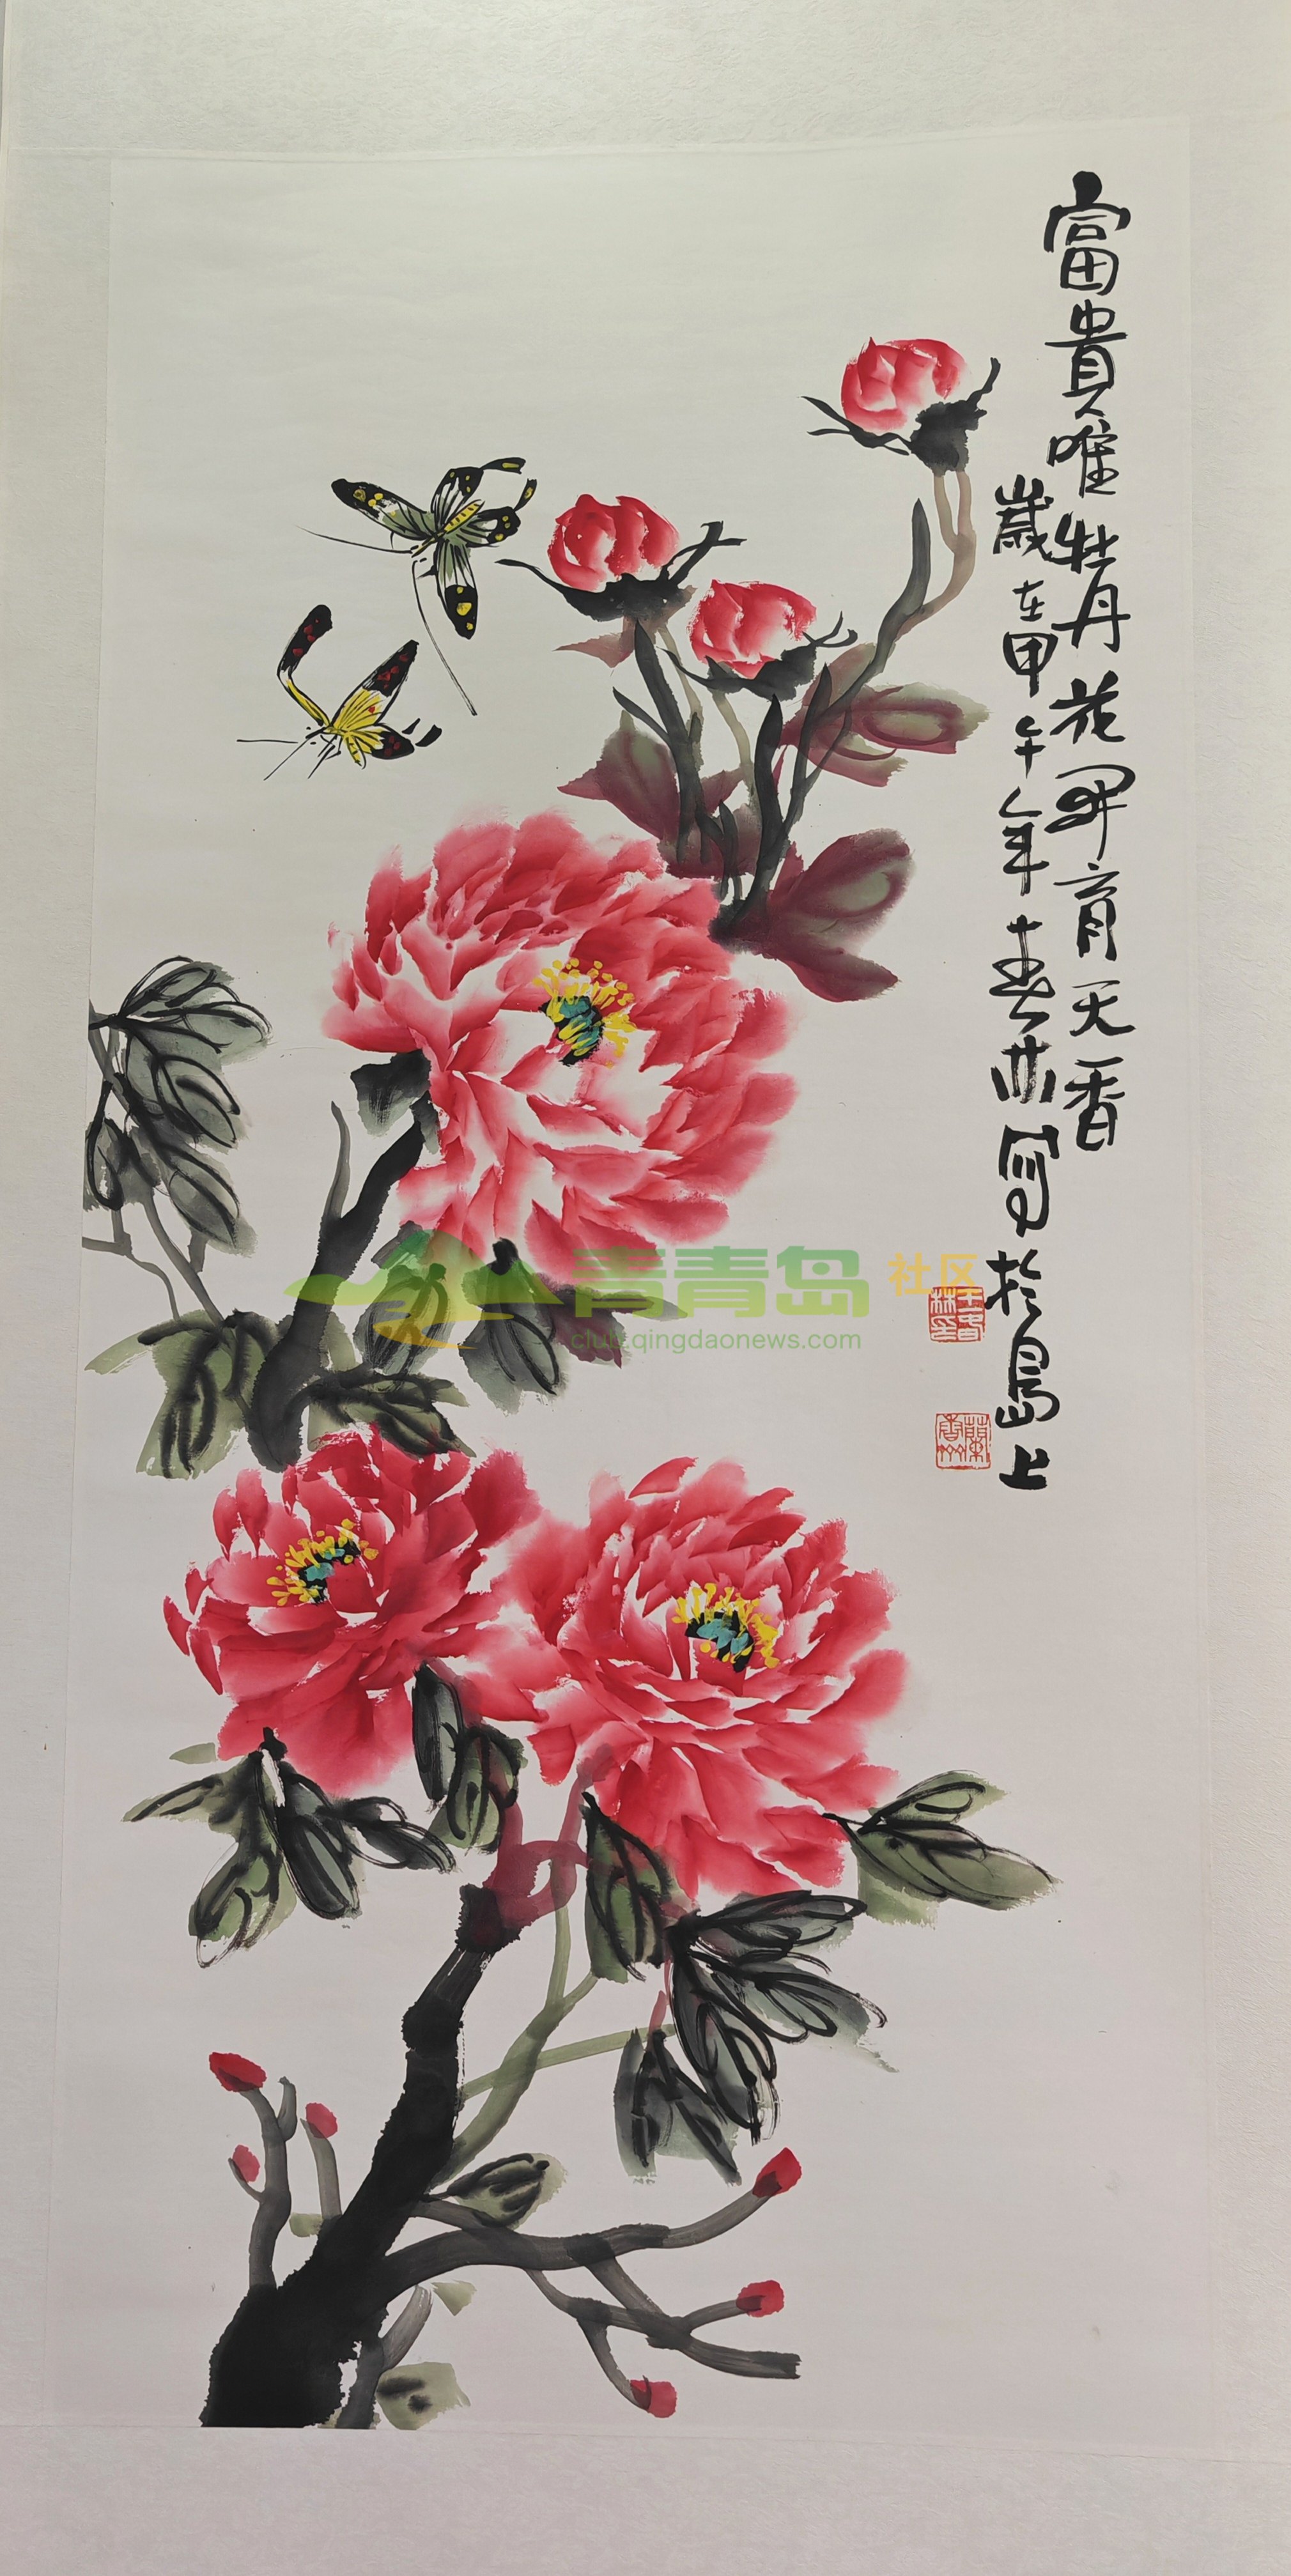 富貴唯牡丹花开育天香
歲在甲午年春林写於島上
青青岛 社区
club.qingdaonews.com